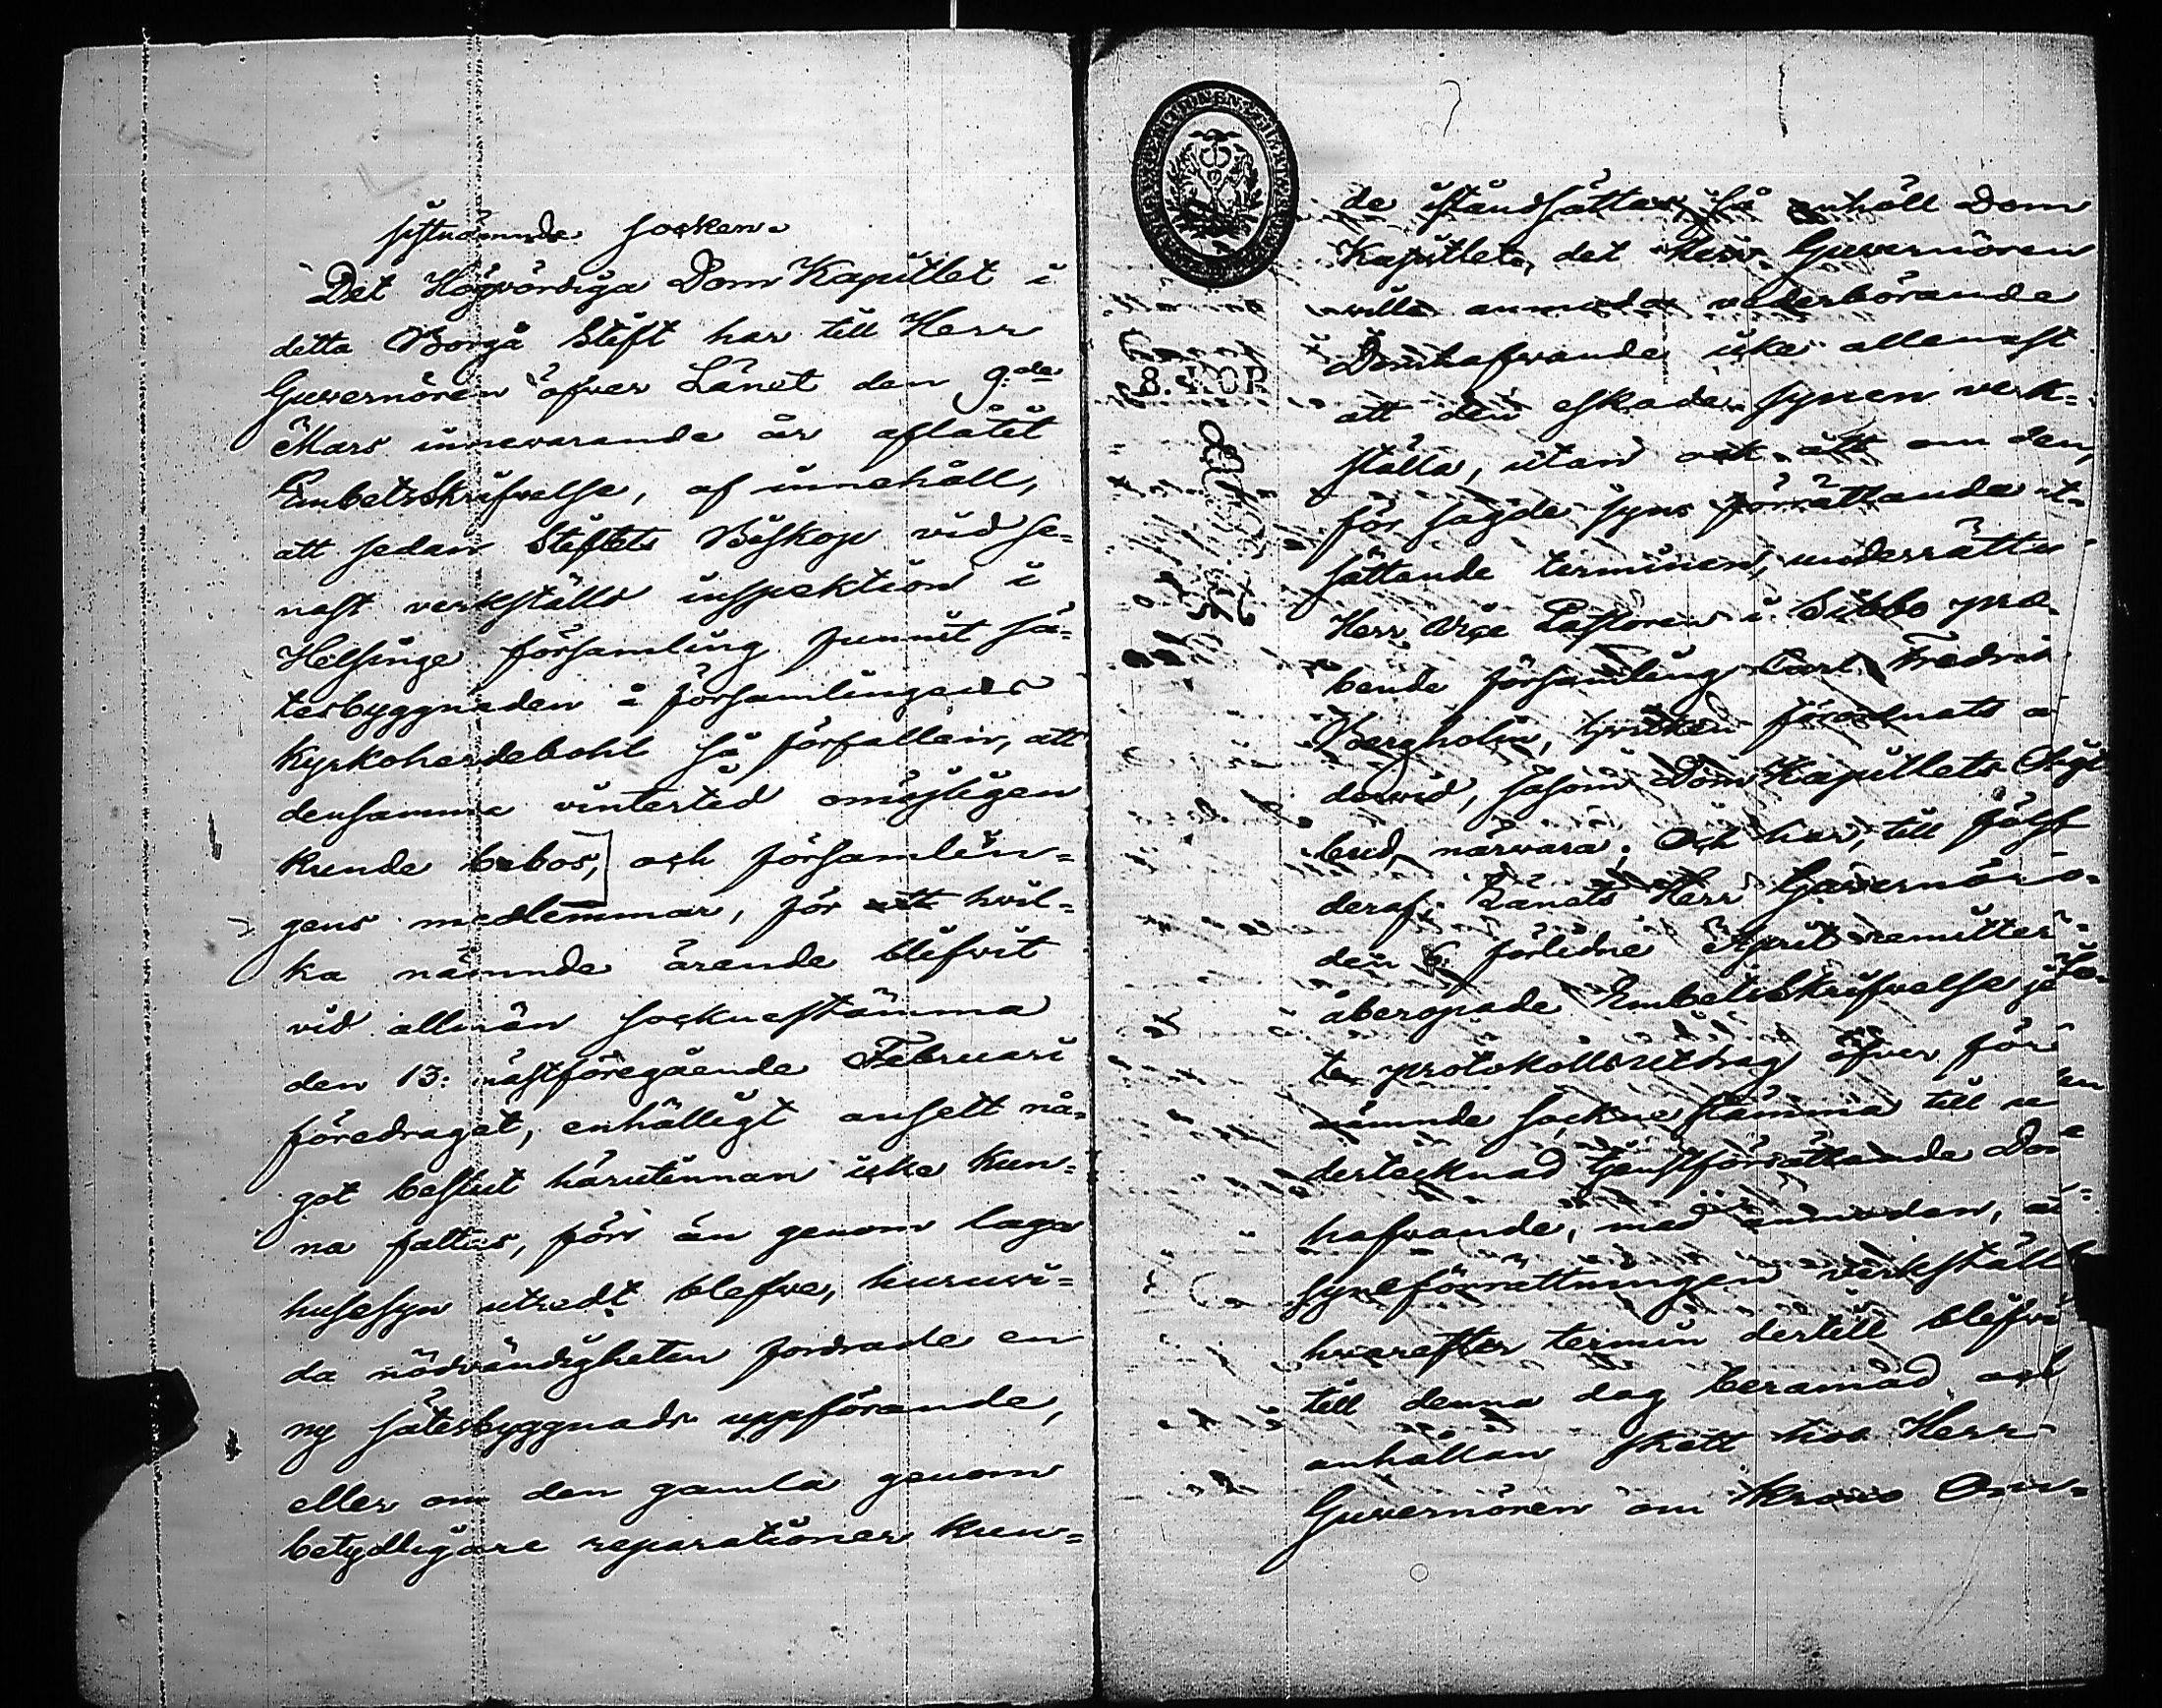 sistnämnde Socken.
Det Högvördiga Dom Kapitlet i
detta Borgå Stift har till Herr
Guvernören öfver Länet den 9:de
Mars innevarande år aflåtit
Embetsskrifvelse, af innehåll,
att sedan Stiftets Biskop vid se=
nast verkställd inspektion i
Helsinge församling funnit sä=
tesbyggnaden å församlingens
Kyrkoherdebohl så förfallen, att
densamma vintertid omöjligen
kunde bebos, och församlin=
gens medlemmar, för hvil=
ka nämnde ärende blifvit
vid allmän sockenstämma
den 13: nästföregående Februari
föredraget, enhälligt ansett nå=
got beslut härutinnan icke kun=
na fattas, förr än genom laga
husesyn utredt blefve, huruvi=
da nödvändigheten fordrade en
ny sätesbyggnads uppförande,
eller om den gamla genom
betydligare reparationer kun=
de iståndsättas, så anhöll Dom
Kapitlet, det Herr Guvernören
ville anmoda vederbörande
Domhafvande icke allenast
att den eskade synen verk=
ställa, utan ock att om den,
för sagde syns förrättande ut=
sättande terminen, underrätta
Herr Vice Pastoren i Sibbo præ=
bende församling Carl Fredrik
Bergholm, hvilken förordnats a
dervid, såsom Dom Kapitlets
bud, närvara; Och har, till följe
deraf, Länets Herr Guvernör
den 6 förlidne April remitter
åberopade Embetsskrifvelse jä
te protokollsutdrag öfver för
nämnde sockne stämma till un
dertecknad tjenstförrättande Dom
hafvande, med anmodan, at
syneförrättningen verkställ
hvarefter termin dertill blifvi
till denna dag beramad och
anhållan skett hos Herr
Guvernören om Krono Om=
8. KOP.